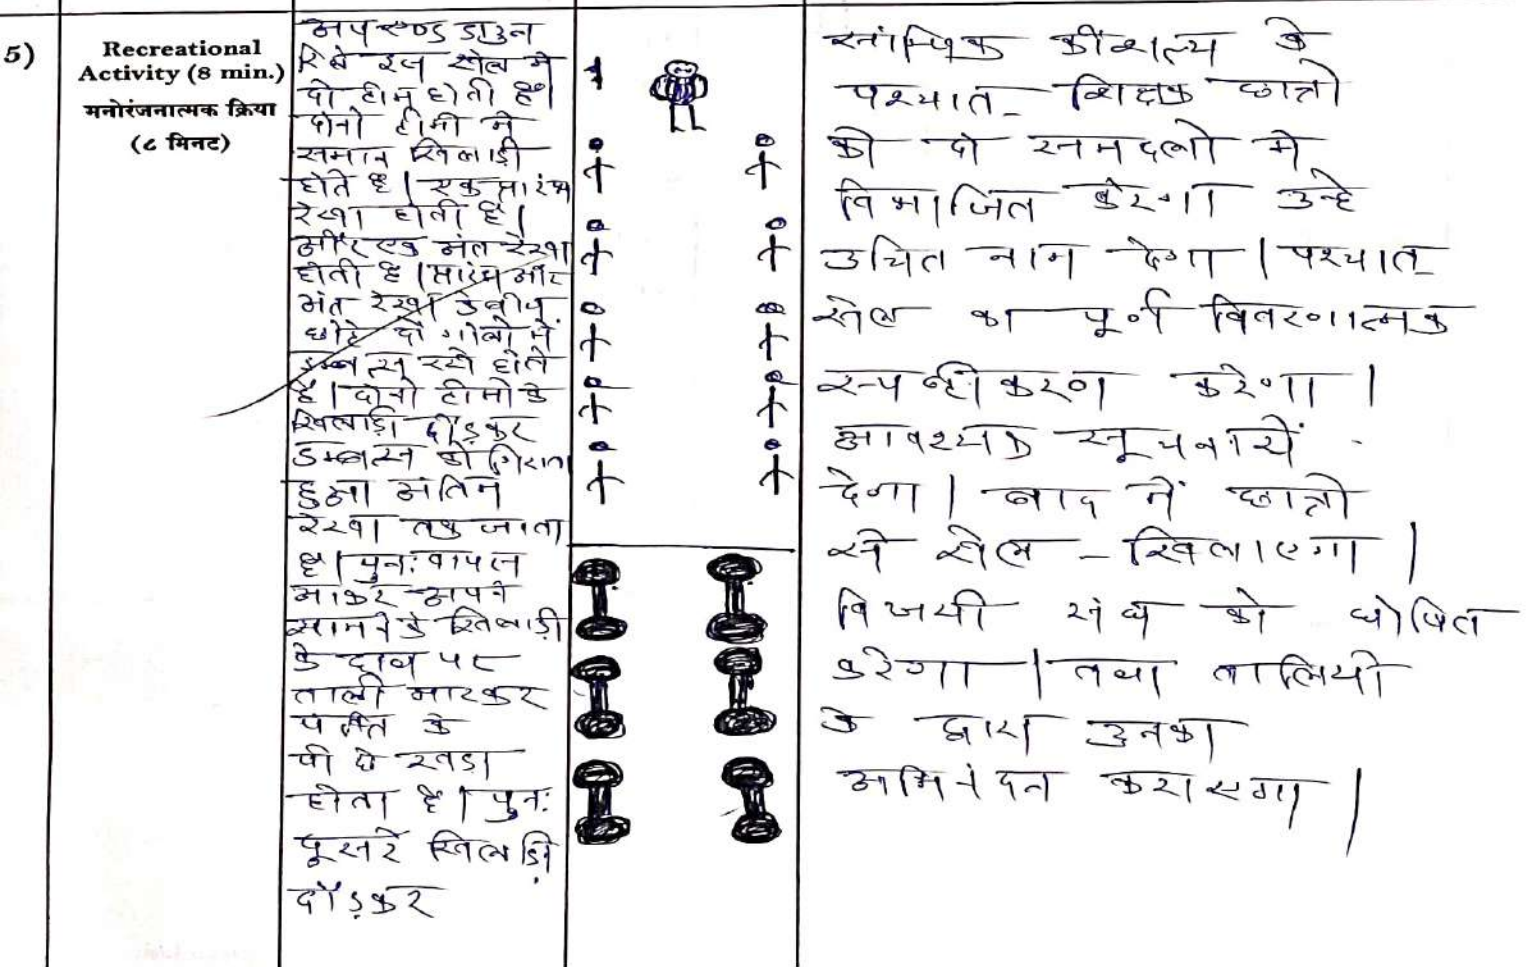 5)
Recreational
Activity (8 min.)
मनोरंजनात्मक क्रिया
(८ मिनट)
अप एण्ड डाउन
रिले इस खेल मे
दो टीम होती है।
दोनो टीमो मे
समान खिलाड़ी
होते है। एक प्रारंभ
रेखा होती है।
और एक अंत रेखा
होती है। प्रारंभ और
अंत रेखा के बीच
छोटे दो गोलो में
डम्बल्स रखे होते
है। दोनो टीमो के
खिलाड़ी दौड़कर
डम्बल्स को गिराता
हुआ अंतिम
रेखा तक जाता
है। पुनः वापस
आकर अपने
सामने के खिलाड़ी
के हाथ पर
ताली मारकर
पंक्ति के
पीछे खड़ा
होता है। पुनः
दूसरे खिलाड़ी
दौड़कर
सांघिक कौशल्य के
पश्चात शिक्षक छात्रो
को दो समदलो मे
विभाजित करेगा उन्हे
उचित नाम देगा। पश्चात
खेल का पूर्ण विवरणात्मक
स्पष्टीकरण करेगा।
आवश्यक सूचनायें
देगा। बाद में छात्रो
से खेल - खिलाएगा।
विजयी संघ को घोषित
करेगा। तथा तालियो
के द्वारा उनका
अभिनंदन कराएगा।